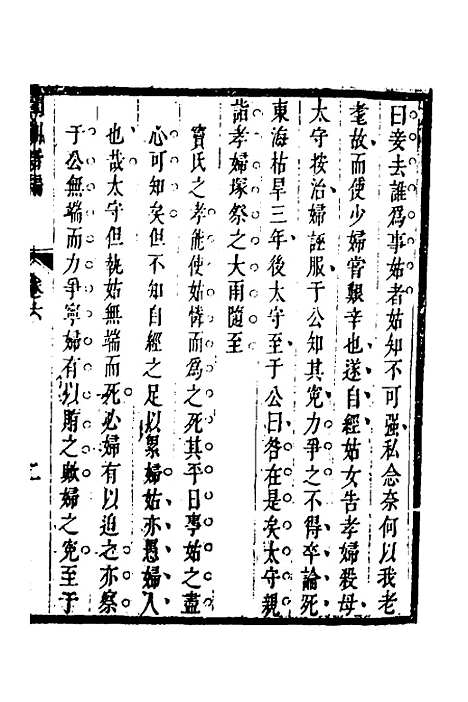 曰妾去誰為事姑者姑知不可強私念奈何以我老
耄故而使少婦嘗艱辛也遂自經姑女告孝婦殺母
太守按治婦誣服于公知其冤力爭之不得卒論死
東海枯旱三年後太守至于公曰咎在是矣太守親
詣孝婦塚祭之大雨隨至
竇氏之孝能使姑憐而為之死其平日事姑之盡
心可知矣但不知自經之足以累婦姑亦愚婦人
也哉太守但執姑無端而死必婦有以迫之亦察
于公無端而力爭寧婦有以賄之歟婦之冤至于
卷六